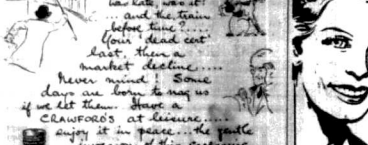 was late, was it!
... and the train
before time?....
Your 'dead cert'
last, then a
market decline.....
Never mind! Some
days are born to nag us
if we let them. Have a
CRAWFORD'S at leisure.....
enjoy it in peace... the gentle